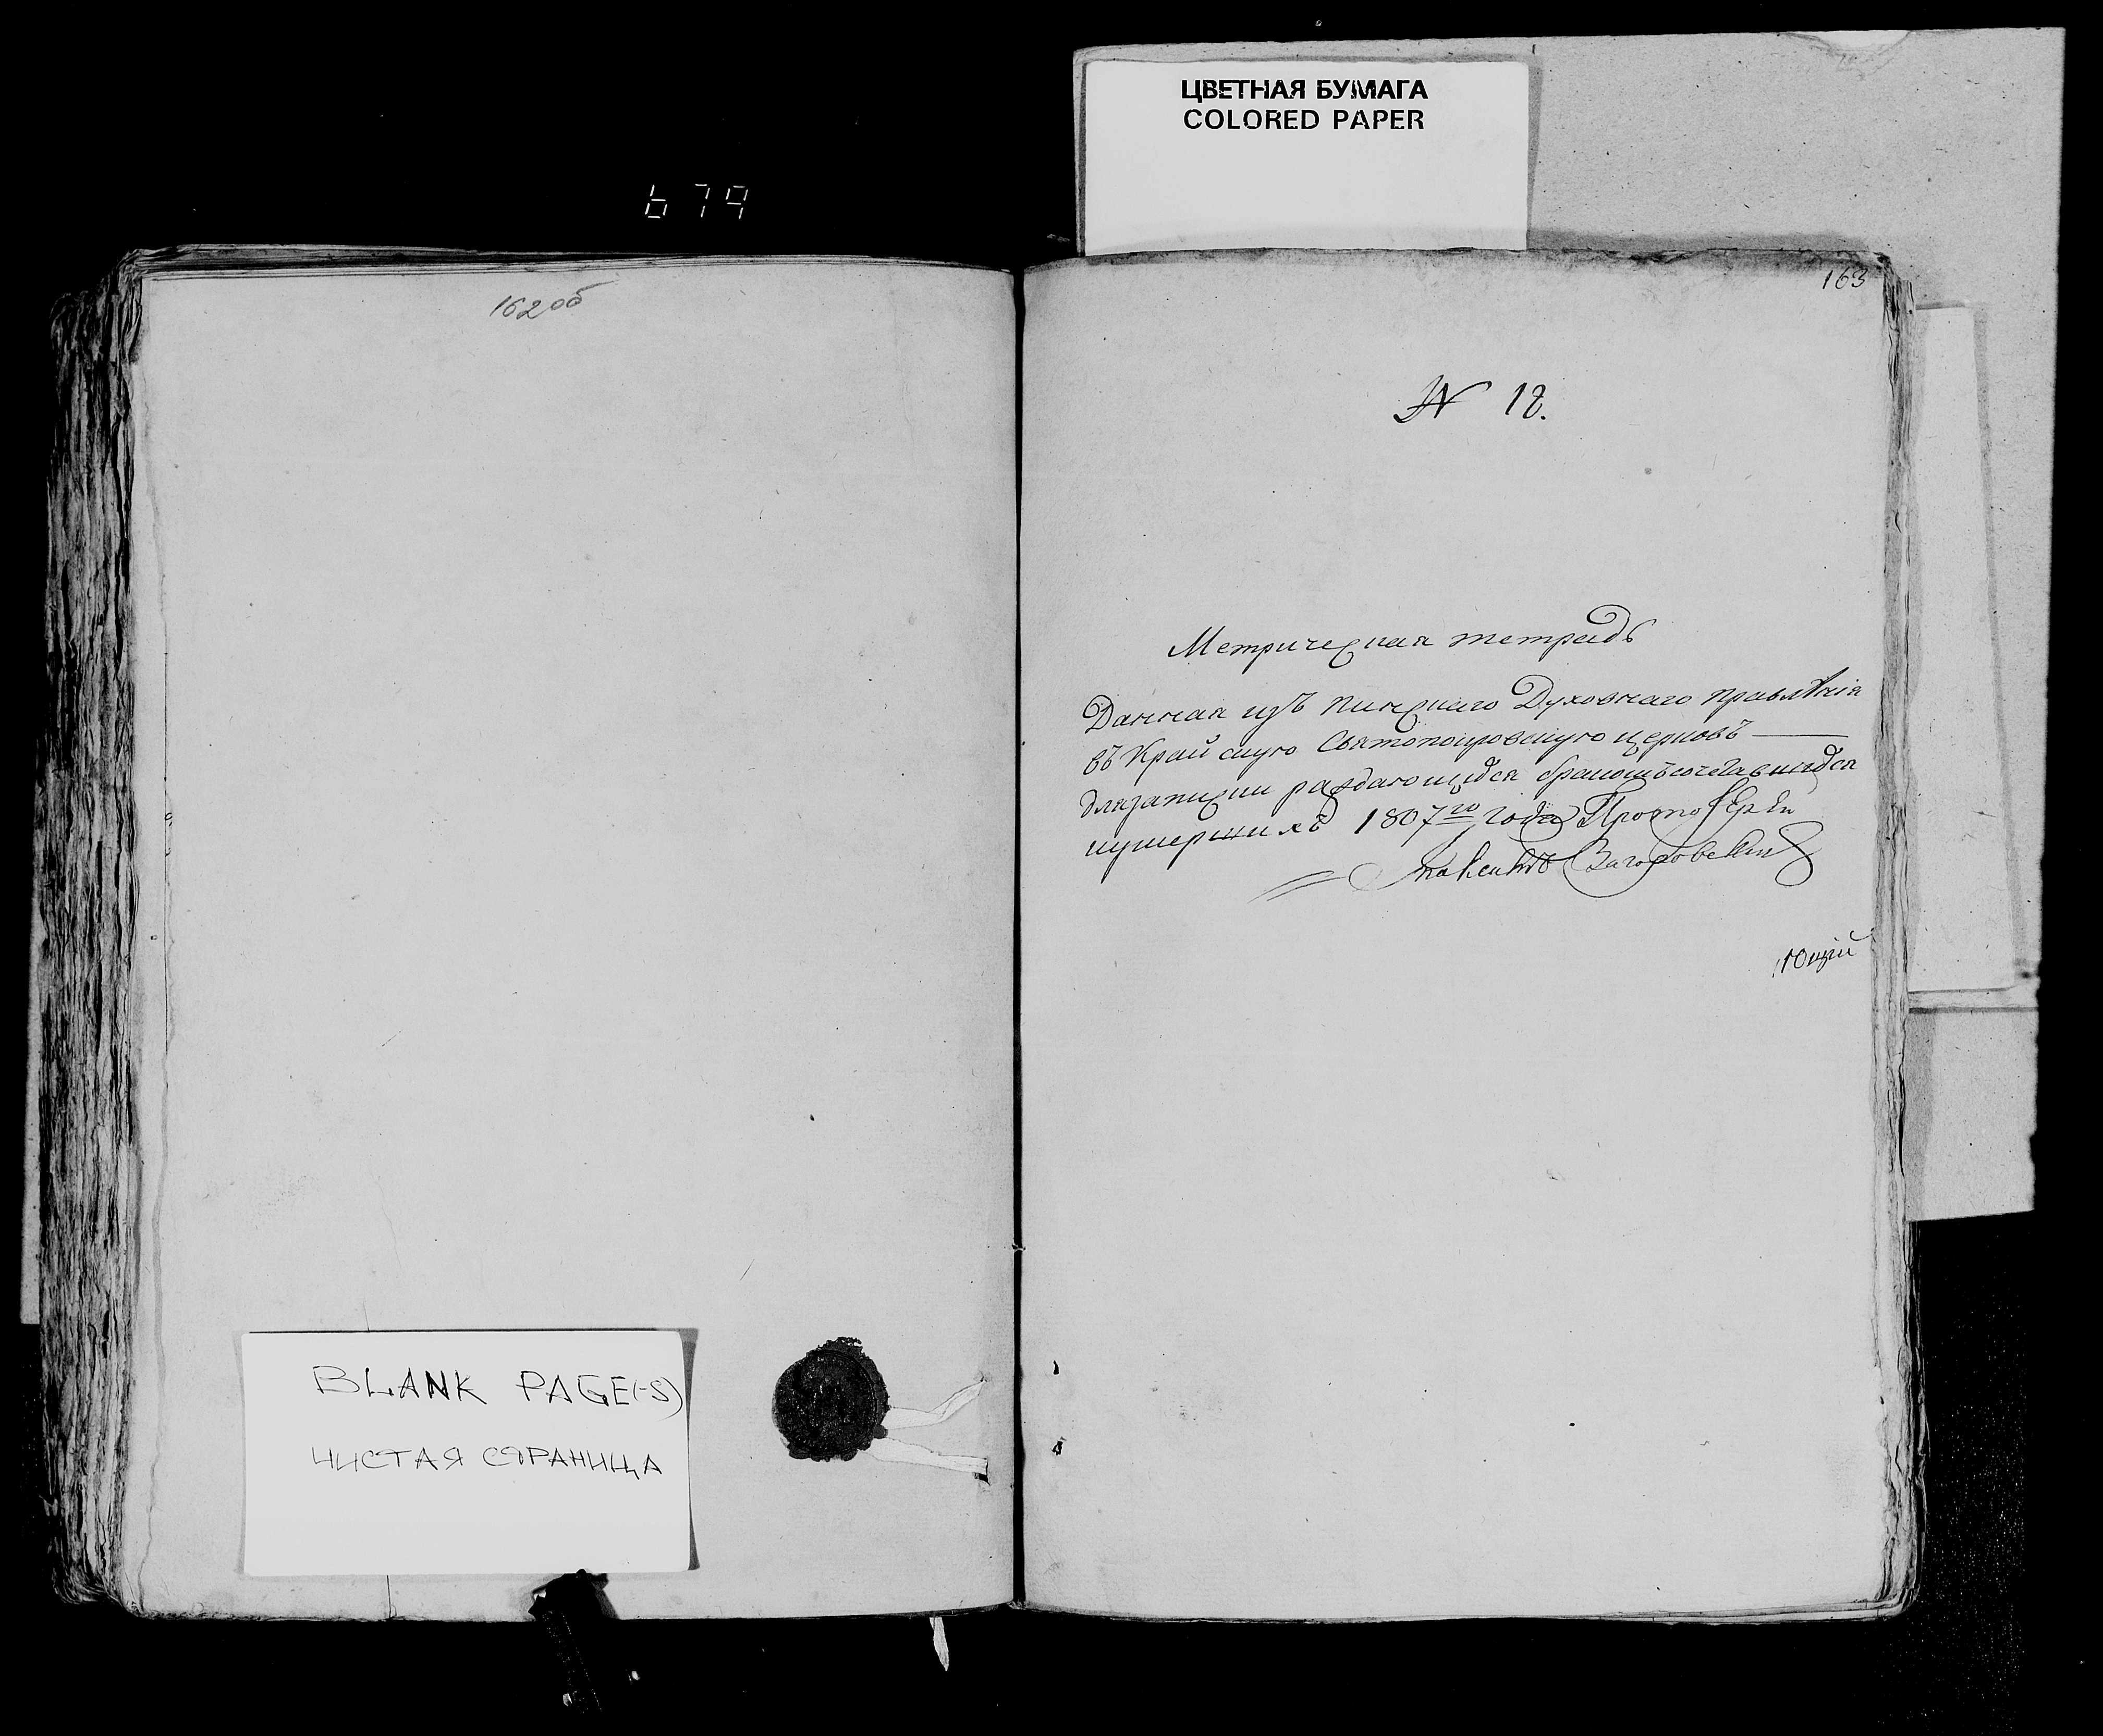 ЦВЕТНАЯ БУМАГА
COLORED PAPER
679
162об
163
N 12.
Метрическая тетрадь
Данная изъ пинскаго Духовнаго правлѣнія
въ Крайскую Святопокровскую церковъ
для записки раждающихся бракомъ сочетавшихся
иумершихъ 1807го года Протоіерей
Загоровский
BLANK PAGE(-S)
ЧИСТАЯ СТРАНИЦА